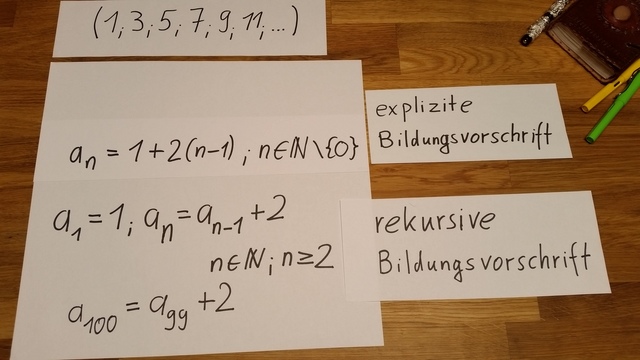 (1; 3; 5; 7; 9; 11; ...)
aₙ = 1+2(n-1) ; n∈ℕ\{0}
explizite
Bildungsvorschrift
a₁ = 1; aₙ = aₙ₋₁ + 2
n∈ℕ; n≥2
a₁₀₀ = a₉₉ + 2
rekursive
Bildungsvorschrift